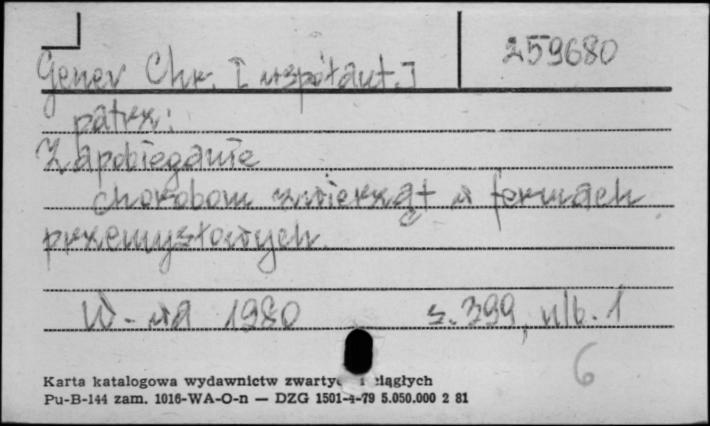 259680
Gener Chr. [współaut.]
patrz:
Zapobieganie
chorobom zwierząt w fermach
przemysłowych.
W-wa 1980 s. 399, nlb. 1
6
Karta katalogowa wydawnictw zwartych i ciągłych
Pu-B-144 zam. 1016-WA-O-n — DZG 1501-4-79 5.050.000 2 81